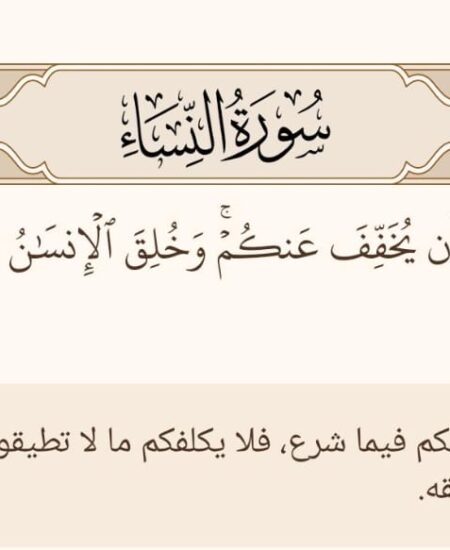 سُورَةُ النِّسَاءِ
ن يُخَفِّفَ عَنكُمۡۚ وَخُلِقَ ٱلۡإِنسَٰنُ
كم فيما شرع، فلا يكلفكم ما لا تطيقو
قه.